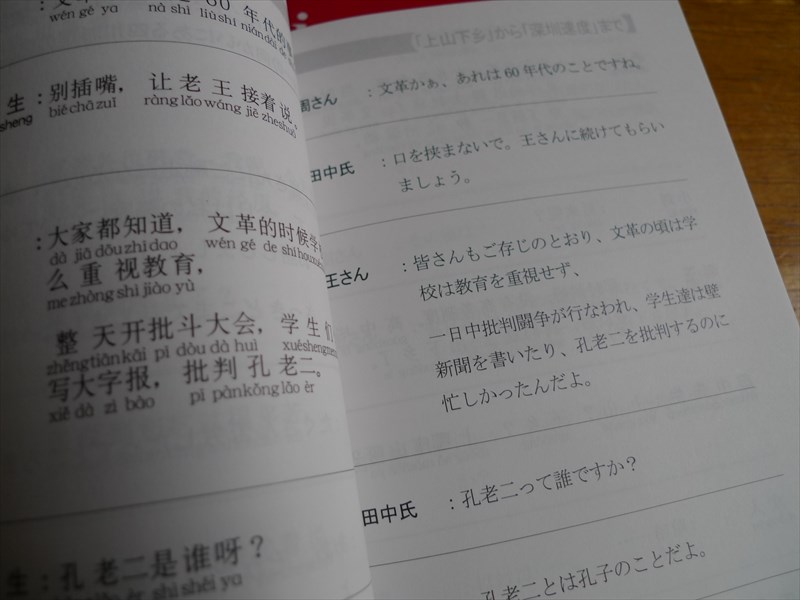 60 年代的
wén gé ya nà shì liù shí nián dài de
生：别插嘴， 让 老 王 接着 说。
sheng bié chā zuǐ ràng lǎo wáng jiē zhe shuō
：大家都知道， 文 革 的 时候 学
dà jiā dōu zhī dao wén gé de shí hou xué
么 重 视 教育，
me zhòng shì jiào yù
整 天 开 批 斗 大 会， 学 生 们
zhěng tiān kāi pī dòu dà huì xué sheng men
写 大 字 报， 批 判 孔 老 二。
xiě dà zì bào pī pàn kǒng lǎo èr
生：孔 老 二 是 谁 呀？
èr shì shéi ya
「上山下乡」から「深圳速度」まで
周さん ：文革かぁ、あれは 60 年代のことですね。
田中氏 ：口を挟まないで。王さんに続けてもらい
ましょう。
王さん ：皆さんもご存じのとおり、文革の頃は学
校は教育を重視せず、
一日中批判闘争が行なわれ、学生達は壁
新聞を書いたり、孔老二を批判するのに
忙しかったんだよ。
田中氏 ：孔老二って誰ですか？
：孔老二とは孔子のことだよ。